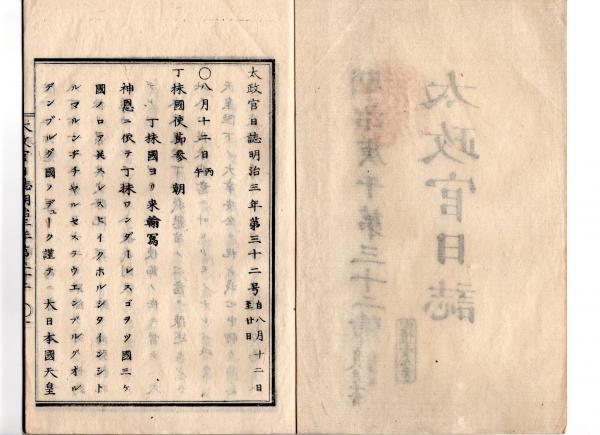 太政官日誌
明治庚午第三十二號
太政官日誌明治三年第三十二号 自八月十二日
至廿日
〇八月十二日 丙
午
丁抹國使節參朝
丁抹國ヨリ來翰寫
神恩ニ依テ丁抹ワンダーレスゴヲツ國三ケ
國ノロフ英スレスヒイクホルシタインシト
ルマルンヂチャルセステウエンブルグオル
デンブルグ國ノデューク謹テ 大日本國天皇